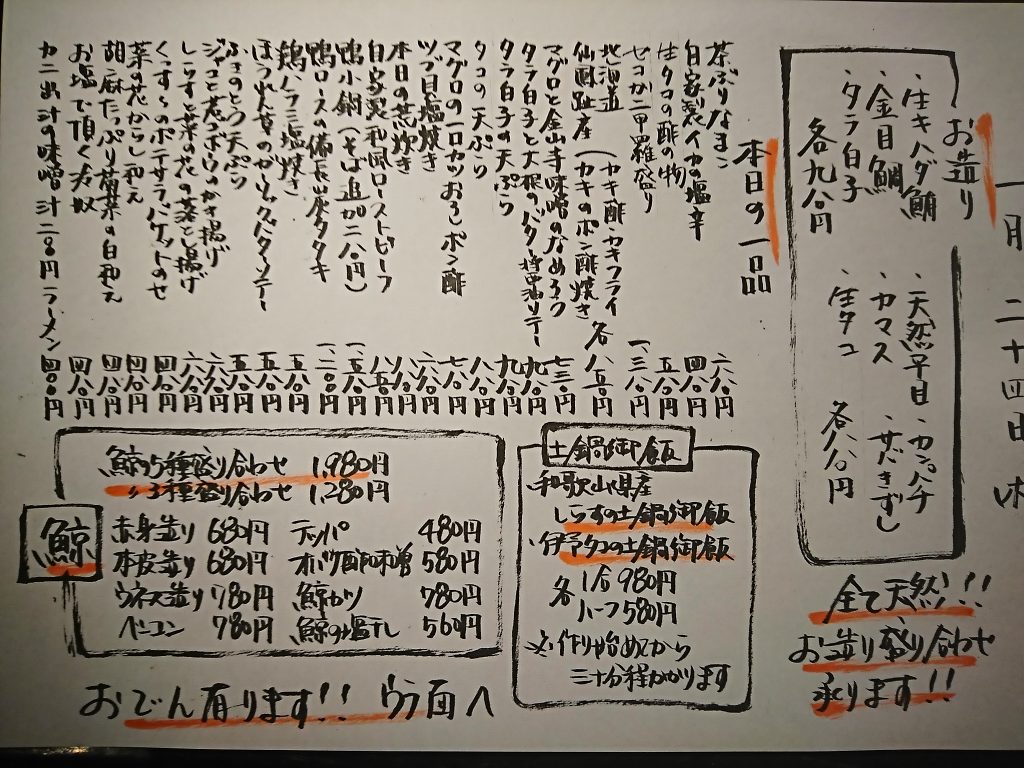 一月二十四日 木
お造り
・生キハダ鮪
・金目鯛
・タラ白子
各九八〇円
・天然平目・カンパチ
・カマス ・サバきずし
・生タコ
各八八〇円
全て天然!!
お造り盛り合わせ
承ります!!
本日の一品
茶ぶりなまこ 六八〇円
自家製イカの塩辛 四八〇円
生タコの酢の物 五八〇円
セコガニ甲羅盛り 一、三八〇円
北海道 (カキ酢・カキフライ
仙鳳趾産 (カキのポン酢焼き 各八五〇円
マグロと金山寺味噌のなめろう 七三〇円
タラ白子と大根のバター醤油ソテー 九八〇円
タラ白子の天ぷら 九八〇円
タコの天ぷら 八八〇円
マグロの一口カツおろしポン酢 七八〇円
ツブ貝塩焼き 六八〇円
本日の荒炊き 八八〇円
自家製和風ローストビーフ 八五〇円
鴨小鍋(そば追加二八〇円) 一、五八〇円
鴨ロースの備長炭タタキ 一、二八〇円
鶏ハラミ塩焼き 五八〇円
ほうれん草のガーリックバターソテー 五八〇円
ふきのとう天ぷら 五八〇円
ジャコと葱ゴボウのかき揚げ 六八〇円
しらすと菜の花の落とし揚げ 六八〇円
くんすーのポテサラバケットのせ 四八〇円
菜の花からし和え 四八〇円
胡麻たっぷり菊菜の白和え 四八〇円
お塩で頂く冷奴 四八〇円
カニ出汁の味噌汁 二八〇円 ラーメン 四八〇円
土鍋御飯
・和歌山県産
しらすの土鍋御飯
・伊予タコの土鍋御飯
各 1合 980円
ハーフ 580円
※作り始めてから
三十分程かかります
鯨
鯨の5種盛り合わせ 1,980円
〃3種盛り合わせ 1,280円
赤身造り 680円 テッパ 480円
本皮造り 680円 オバケ酢味噌 580円
ウネス造り 780円 鯨カツ 780円
ベーコン 780円 鯨の塩干し 560円
おでん有ります!! ウラ面へ